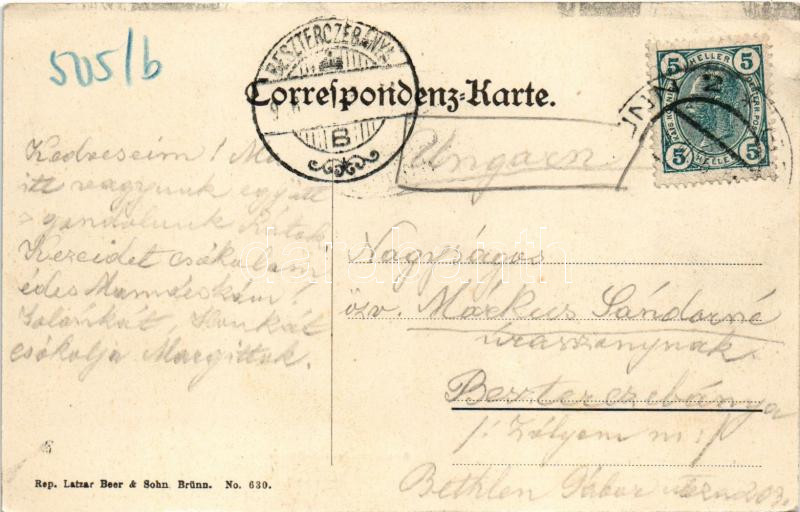 505/b
BESZTERCZEBÁNYA
B
Correspondenz-Karte.
5 HELLER 5
5 HELLER 5
Ungarn
Kedveseim! Ma
itt vagyunk együtt
s gondolunk Rátok
Kezeidet csókolom
édes Mamácskám!
Ilonkát
csókolja Margittok.
Nagyságos
özv. Márkus Sándorné
úrasszonynak
Beszterczebánya
/: Zólyom m:/
Bethlen Gábor utcza 203.
Rep. Latzar Beer & Sohn. Brünn. No. 630.